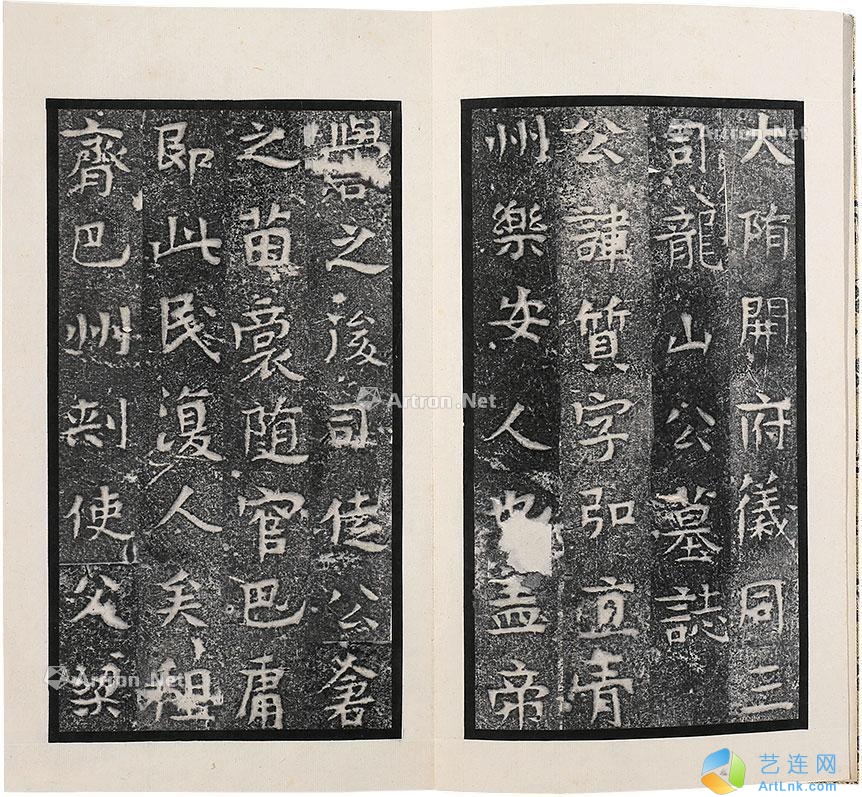 大隋開府儀同三
司龍山公墓誌
公諱質字弘直青
州樂安人也盖帝
嚳之後司徒公
之苗裔随官巴庸
即此民復人矣祖
齊巴州刺使父梁
Artron.Net
Artron.Net
Artron.Net
艺连网
ArtLnk.com